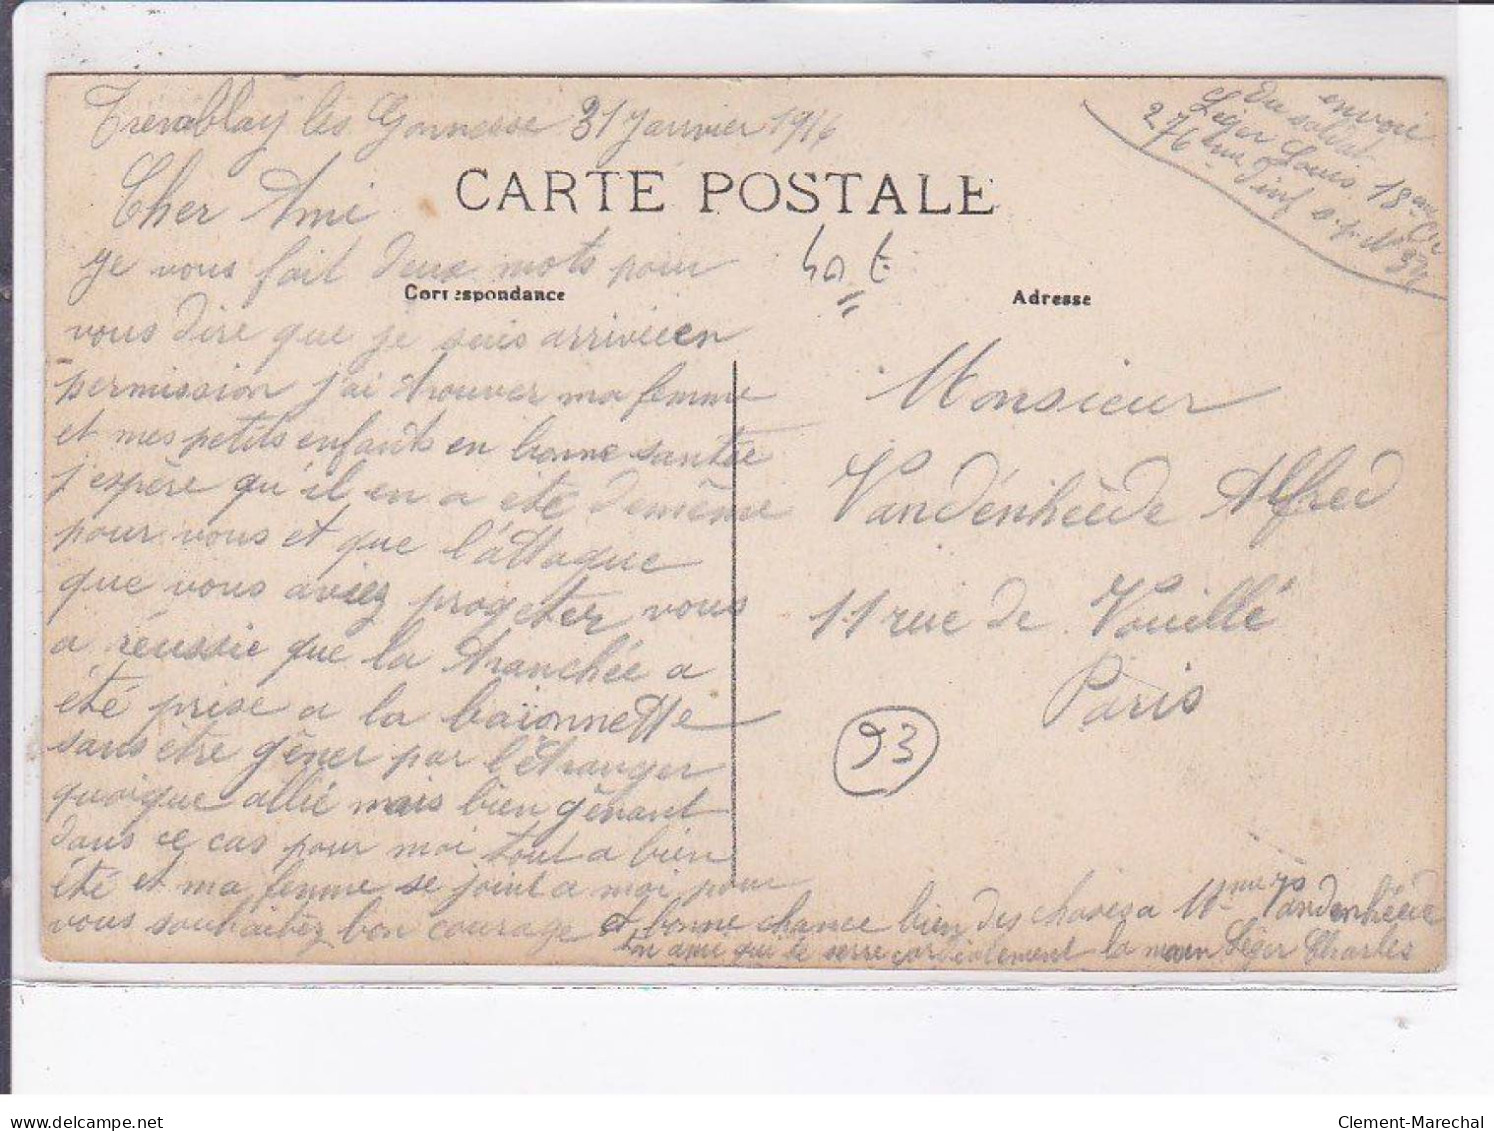 Tremblay les Gonnesse 31 Janvier 1916
envoie
du soldat
Léger Louis 18eme Cie
276 eme d'inf s.p. No 32
CARTE POSTALE
Cher Ami
Je vous fait deux mots pour
Correspondance
Adresse
vous dire que je suis arrivéeen
permission j'ai trouver ma femme
et mes petits enfants en bonne santée
j'espère qu'il en a été demême
pour vous et que l'attaque
que vous aviez progeter vous
a réussie que la tranchée a
été prise a la baïonnette
sans être gêner par l'étranger
quoique allié mais bien gênant
dans ce cas pour moi tout a bien
été et ma femme se joint a moi pour
vous souhaitez bon courage et bonne chance bien des choses a Mme Vandenhéede
ton ami qui te serre cordialement la main Léger Charles
Monsieur
Vandénhéede Alfred
11 rue de Vouillé
Paris
93
Clement-Marechal
www.delcampe.net